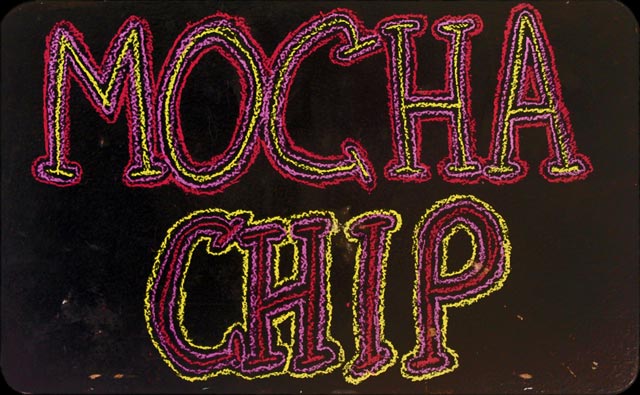 MOCHA
CHIP